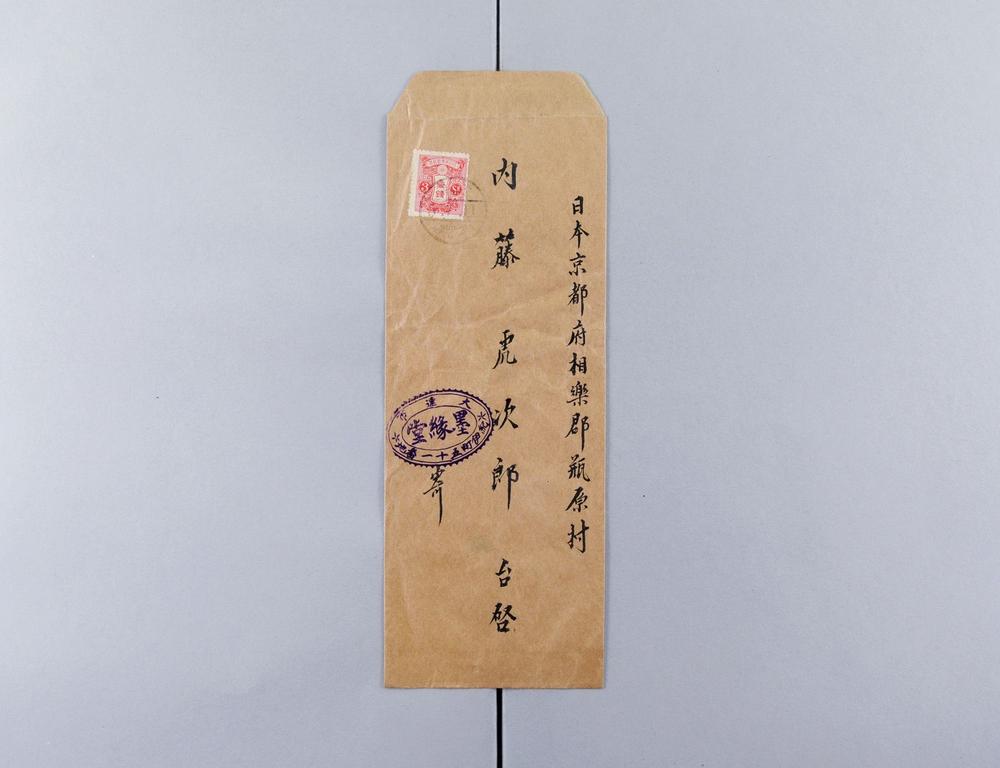 日本京都府相樂郡瓶原村
内藤虎次郎 台啓
3 3
大連
墨緣堂
紀伊町五十一番地
寄